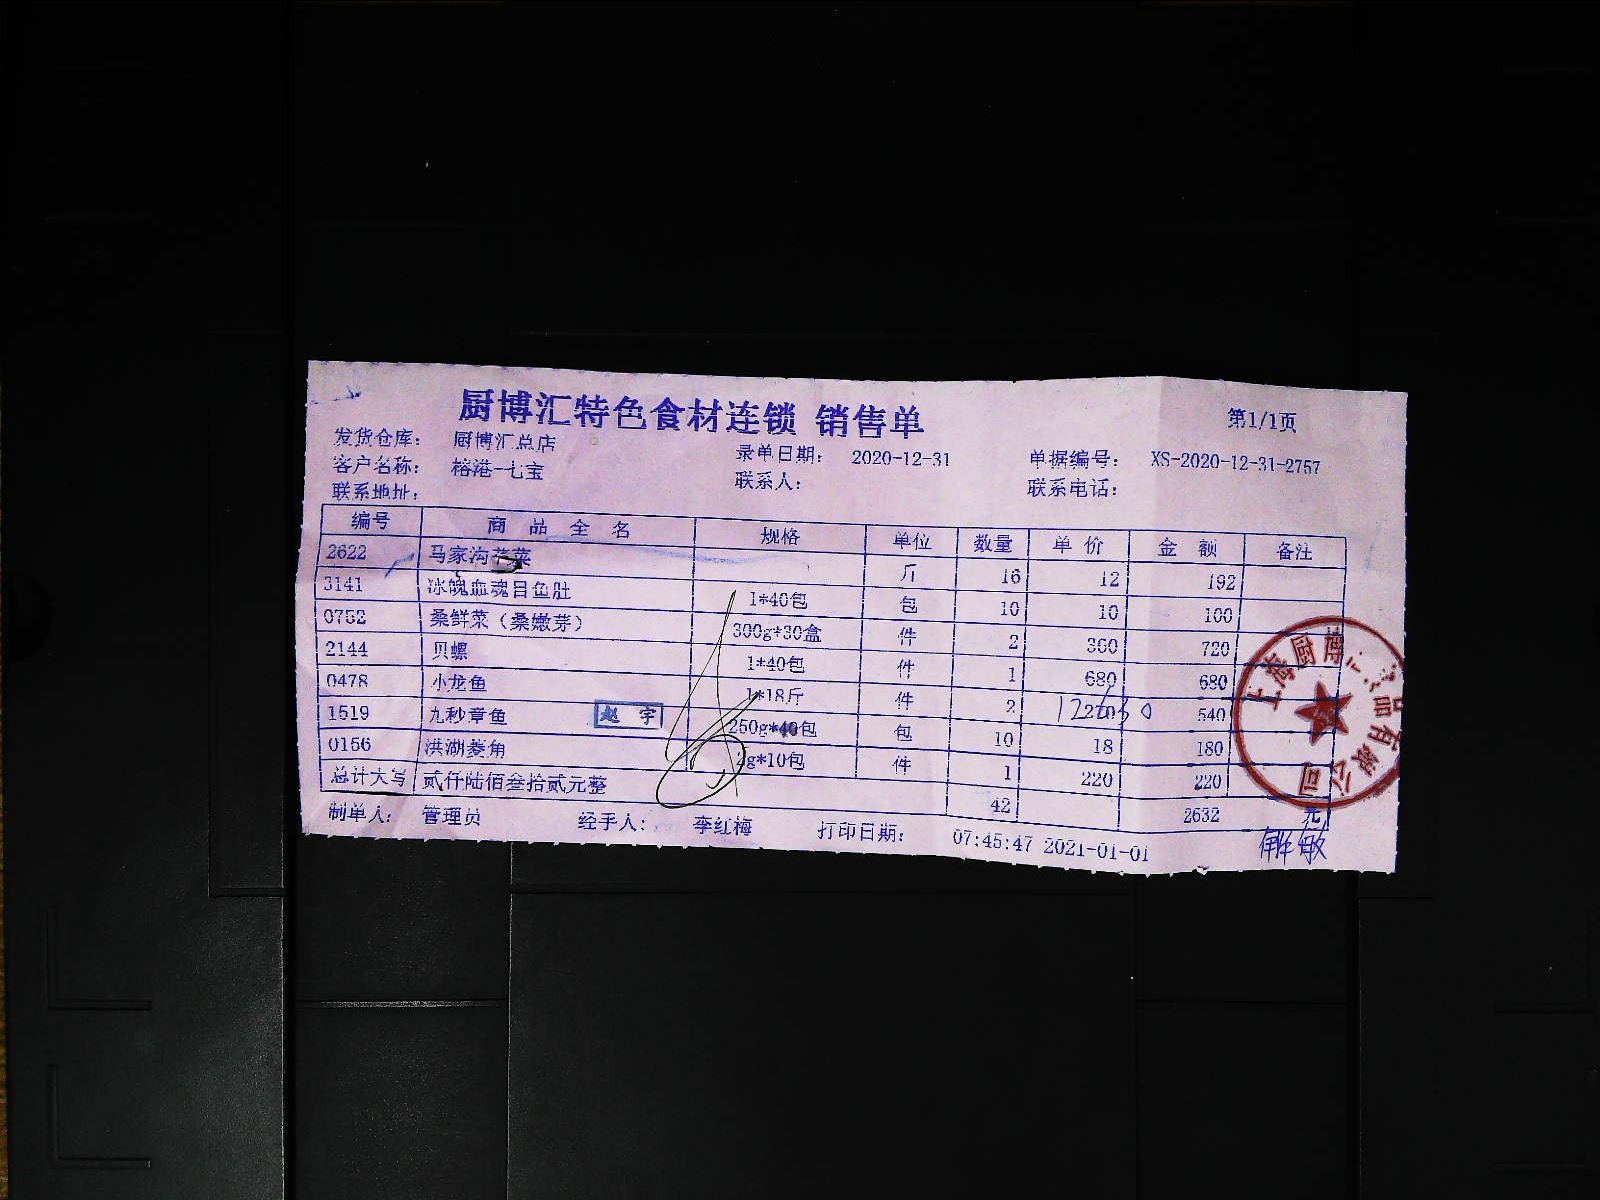 厨博汇特色食材连锁 销售单 第1/1页
发货仓库： 厨博汇总店 录单日期： 2020-12-31 单据编号： XS-2020-12-31-2757
客户名称： 榕港-七宝 联系人： 联系电话：
联系地址：
编号 商品全名 规格 单位 数量 单价 金额 备注
2622 马家沟芹菜 斤 16 12 192
3141 冰魄血魂目鱼肚 1*40包 包 10 10 100
0752 桑鲜菜（桑嫩芽） 300g*30盒 件 2 360 720
2144 贝螺 1*40包 件 1 680 680
0478 小龙鱼 1*18斤 件 2 540
1519 九秒章鱼 赵宇 250g*40包 包 10 18 180
0156 洪湖菱角 *10包 件 1 220 220
总计大写 贰仟陆佰叁拾贰元整 42 2632 元
制单人： 管理员 经手人： 李红梅 打印日期： 07:45:47 2021-01-01
上海厨博 品有限公司